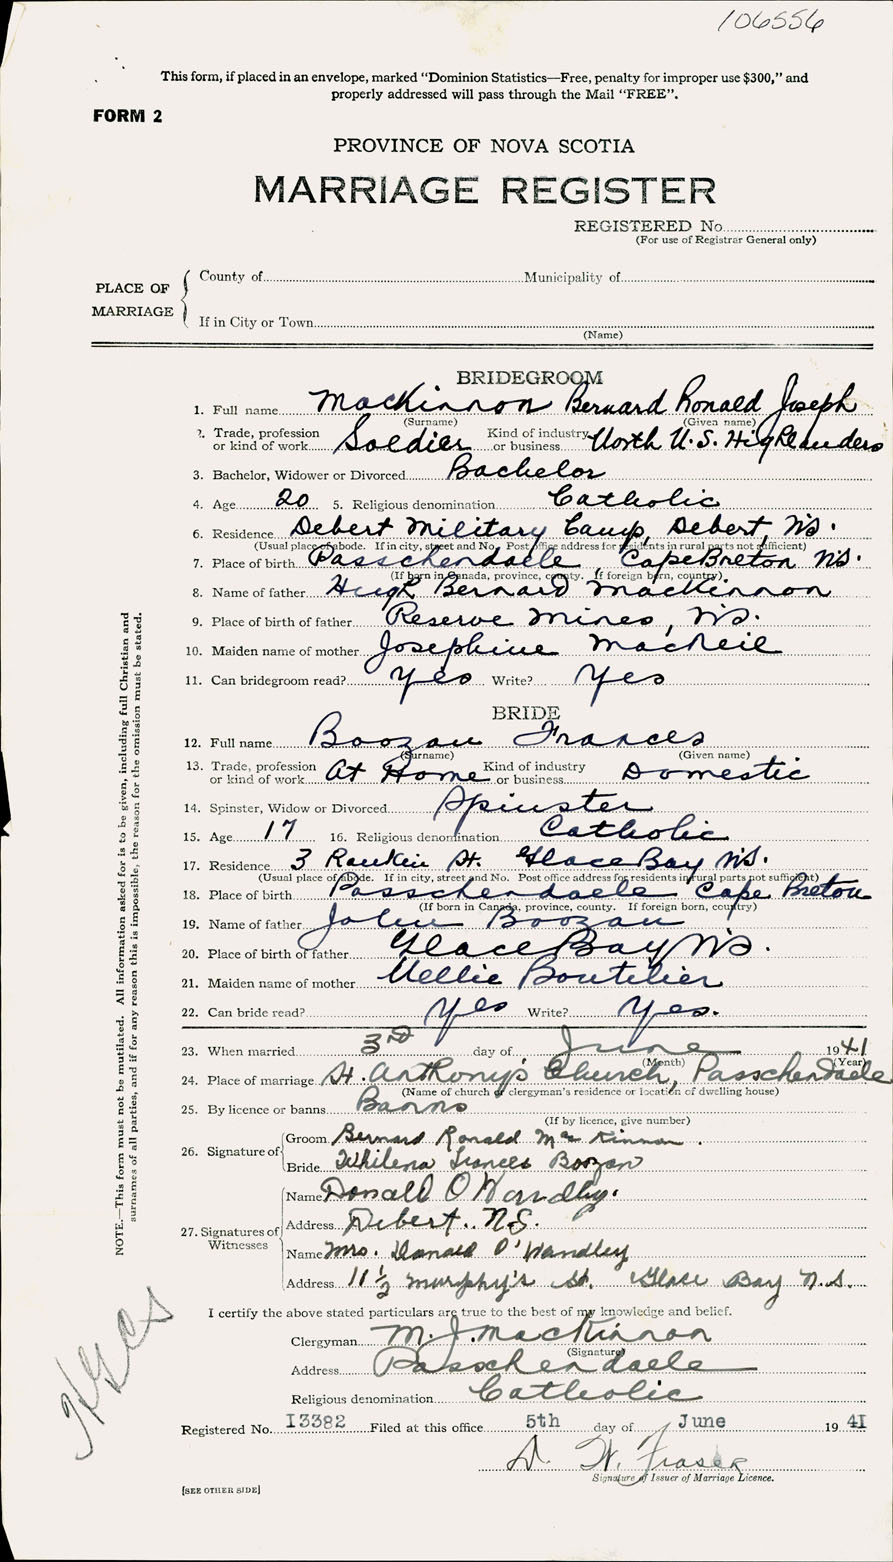 106556
This form, if placed in an envelope, marked "Dominion Statistics—Free, penalty for improper use $300," and
properly addressed will pass through the Mail "FREE".
FORM 2
PROVINCE OF NOVA SCOTIA
MARRIAGE REGISTER
REGISTERED No.
(For use of Registrar General only)
PLACE OF MARRIAGE
County of Municipality of
If in City or Town
(Name)
BRIDEGROOM
1. Full name MacKinnon Bernard Ronald Joseph
(Surname) (Given name)
2. Trade, profession or kind of work Soldier Kind of industry or business North N.S. Highlanders
3. Bachelor, Widower or Divorced Bachelor
4. Age 20 5. Religious denomination Catholic
6. Residence Debert Military Camp, Debert, N.S.
(Usual place of abode. If in city, street and No. Post office address for residents in rural parts not sufficient)
7. Place of birth Passchendaele, Cape Breton N.S.
(If born in Canada, province, county. If foreign born, country).
8. Name of father Hugh Bernard MacKinnon
9. Place of birth of father Reserve Mines, N.S.
10. Maiden name of mother Josephine MacNeil
11. Can bridegroom read? Yes Write? Yes
BRIDE
12. Full name Boozan Frances
(Surname) (Given name)
13. Trade, profession or kind of work At Home Kind of industry or business Domestic
14. Spinster, Widow or Divorced Spinster
15. Age 17 16. Religious denomination Catholic
17. Residence 3 Rankin St. Glace Bay N.S.
(Usual place of abode. If in city, street and No. Post office address for residents in rural parts not sufficient)
18. Place of birth Passchendaele Cape Breton
(If born in Canada, province, county. If foreign born, country)
19. Name of father John Boozan
20. Place of birth of father Glace Bay N.S.
21. Maiden name of mother Nellie Boutilier
22. Can bride read? Yes Write? Yes.
23. When married 3rd day of June 1941
(Month) (Year)
24. Place of marriage St. Anthony's Church, Passchendaele
(Name of church or clergyman's residence or location of dwelling house)
25. By licence or banns Banns
(If by licence, give number)
26. Signature of
Groom Bernard Ronald McKinnon.
Bride Whilena Frances Boozan
27. Signatures of Witnesses
Name Donald O'Handley.
Address Debert. N.S.
Name Mrs. Donald O'Handley
Address 11½ Murphy's St. Glace Bay N.S.
I certify the above stated particulars are true to the best of my knowledge and belief.
Clergyman M. J. MacKinnon
(Signature)
Address Passchendaele
Religious denomination Catholic
Registered No. 13382 Filed at this office 5th day of June 1941
D. W. Fraser
Signature of Issuer of Marriage Licence.
[SEE OTHER SIDE]
NOTE.—This form must not be mutilated. All information asked for is to be given, including full Christian and
surnames of all parties, and if for any reason this is impossible, the reason for the omission must be stated.